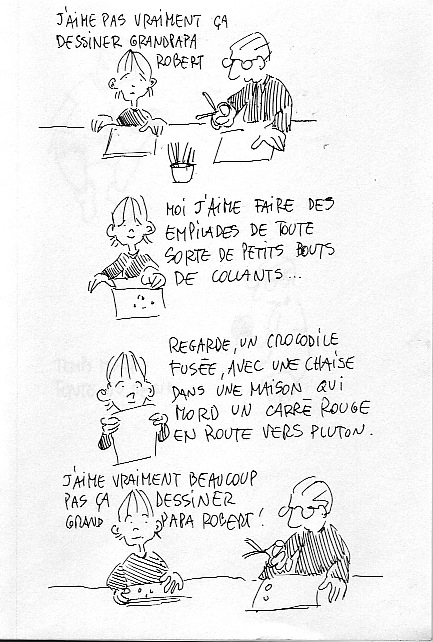 J'AIME PAS VRAIMENT ÇA
DESSINER GRANDPAPA
ROBERT
MOI J'AIME FAIRE DES
EMPILADES DE TOUTE
SORTE DE PETITS BOUTS
DE COLLANTS...
REGARDE, UN CROCODILE
FUSÉE, AVEC UNE CHAISE
DANS UNE MAISON QUI
MORD UN CARRÉ ROUGE
EN ROUTE VERS PLUTON.
J'AIME VRAIMENT BEAUCOUP
PAS ÇA DESSINER
GRAND PAPA ROBERT!